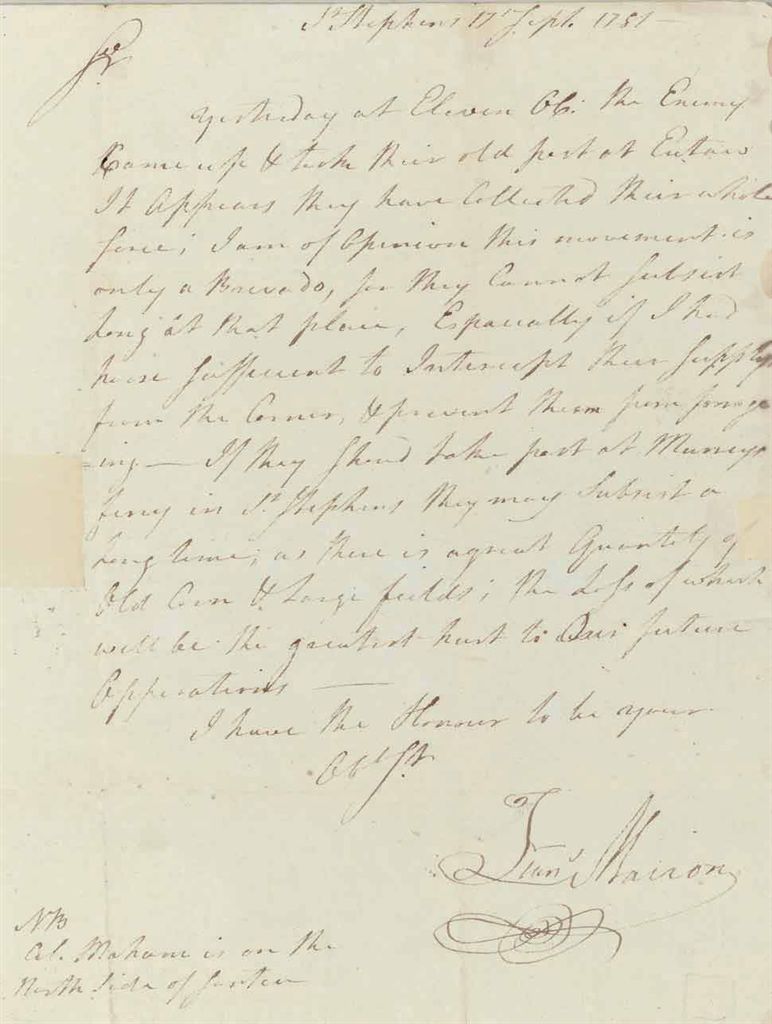 St. Stephens 17th Sept. 1781 —
Sr.
Yesterday at Eleven OC. the Enemy
Came up & took their old post at Eutaw
It Appears they have Collected their whole
force; I am of Opinion this movement is
only a Bravado, for they Cannot subsist
long at that place, Espacually if I had
horse suffecient to Intercept their supplys
from the Corner, & prevent them from forrage
=ing — If they shoud take post at Murrays
ferry in St. Stephens they may Subsist a
long time, as there is a great Quantity of
Old Corn & Large fields; the Loss of which
will be the greatest hurt to Our future
Opperations —
I have the Honour to be your
Obt. St.
Frans. Marion
NB
Col. Maham is on the
North Side of Santee